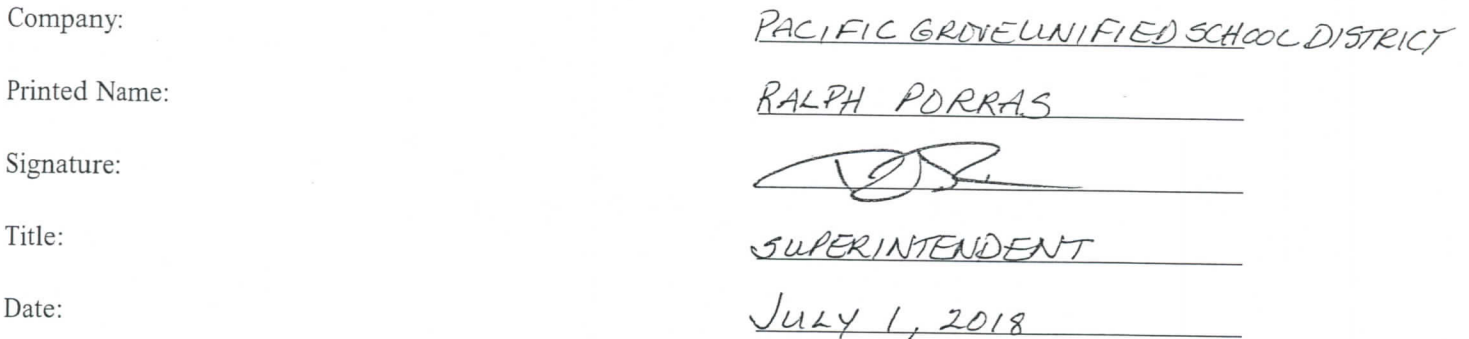 Company: PACIFIC GROVE UNIFIED SCHOOL DISTRICT
Printed Name: RALPH PORRAS
Signature:
Title: SUPERINTENDENT
Date: JULY 1, 2018